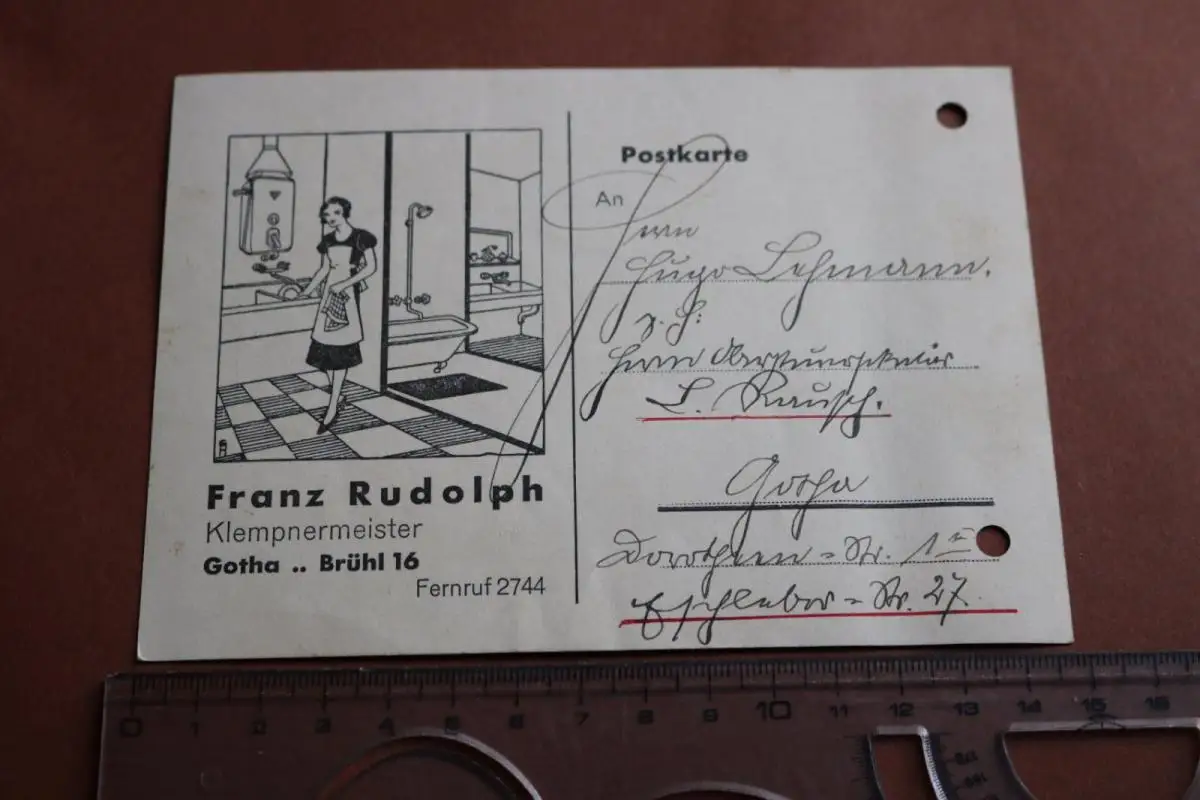 Franz Rudolph
Klempnermeister
Gotha .. Brühl 16
Fernruf 2744
Postkarte
An
Herrn
Hugo Lehmann.
z. H:
Herrn
L. Rausch.
Gotha
Dorotheen=Str. 1
Eschleber=Str. 27.
0 1 2 3 4 5 6 7 8 9 10 11 12 13 14 15 16